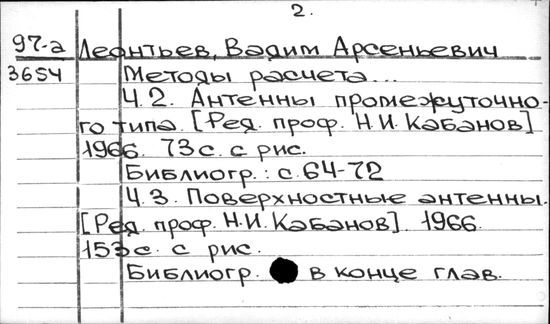 2.
97-а Леонтьев, Вадим Арсеньевич
3654 Методы расчета...
Ч.2. Антенны промежуточно-
го типа. [Ред. проф. Н.И. Кабанов]
1966. 73 с. с рис.
Библиогр.: с. 64-72
Ч.3. Поверхностные антенны.
[Ред. проф. Н.И. Кабанов]. 1966.
153 с. с рис.
Библиогр. в конце глав.